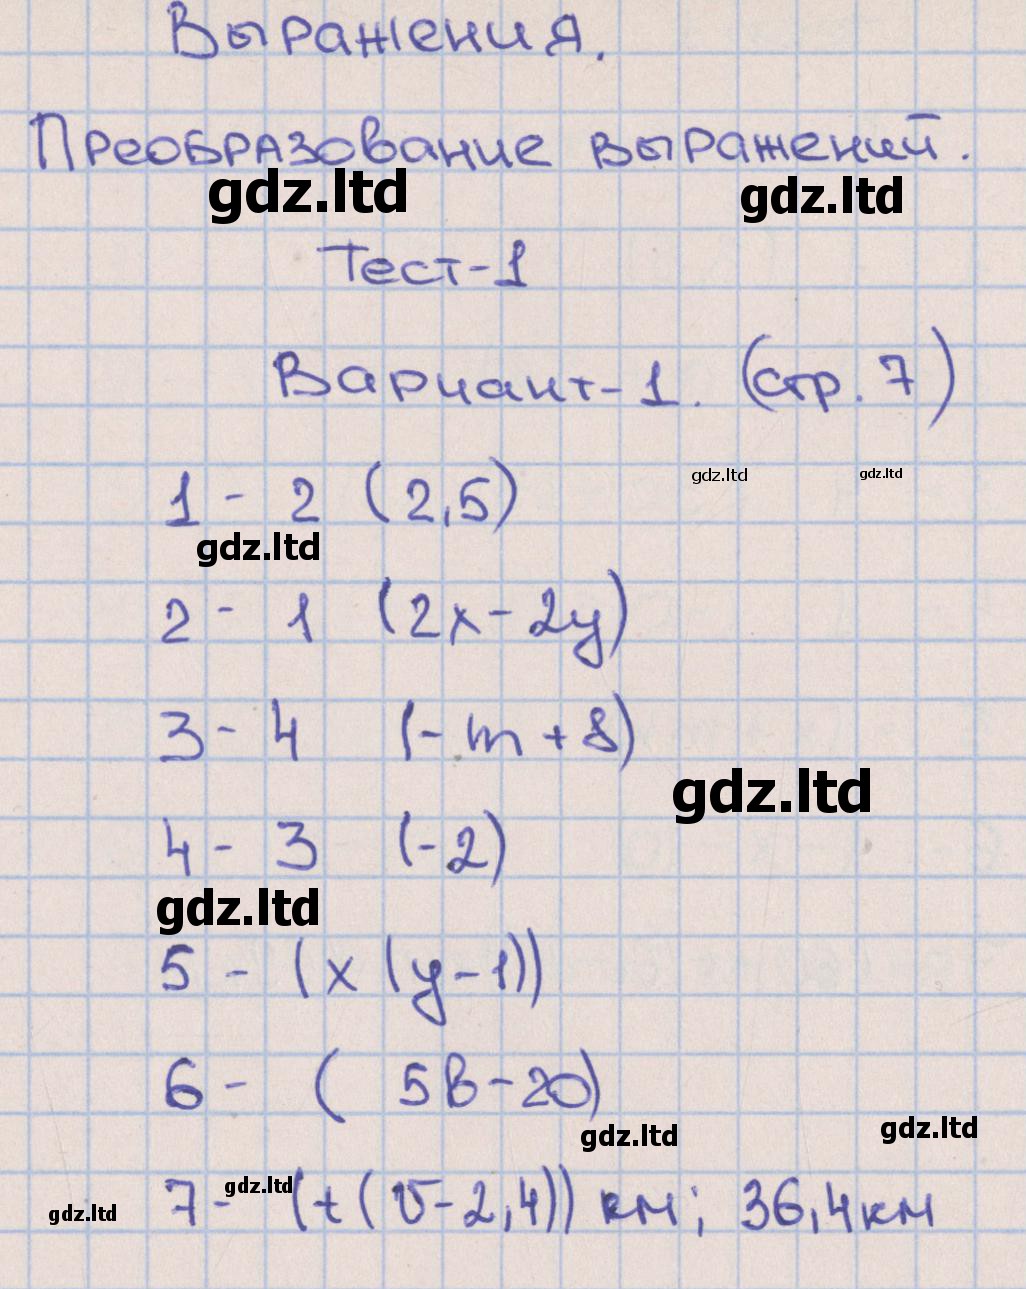 Выражения.
Преобразование выражений.
gdz.ltd gdz.ltd
Тест-1
Вариант-1. (стр. 7)
gdz.ltd gdz.ltd
1 - 2 (2,5)
gdz.ltd
2 - 1 (2x - 2y)
3 - 4 (-m + 8)
gdz.ltd
4 - 3 (-2)
gdz.ltd
5 - (x (y - 1))
6 - ( 5в - 20)
gdz.ltd gdz.ltd
7 - (t (v - 2,4)) км; 36,4 км
gdz.ltd gdz.ltd